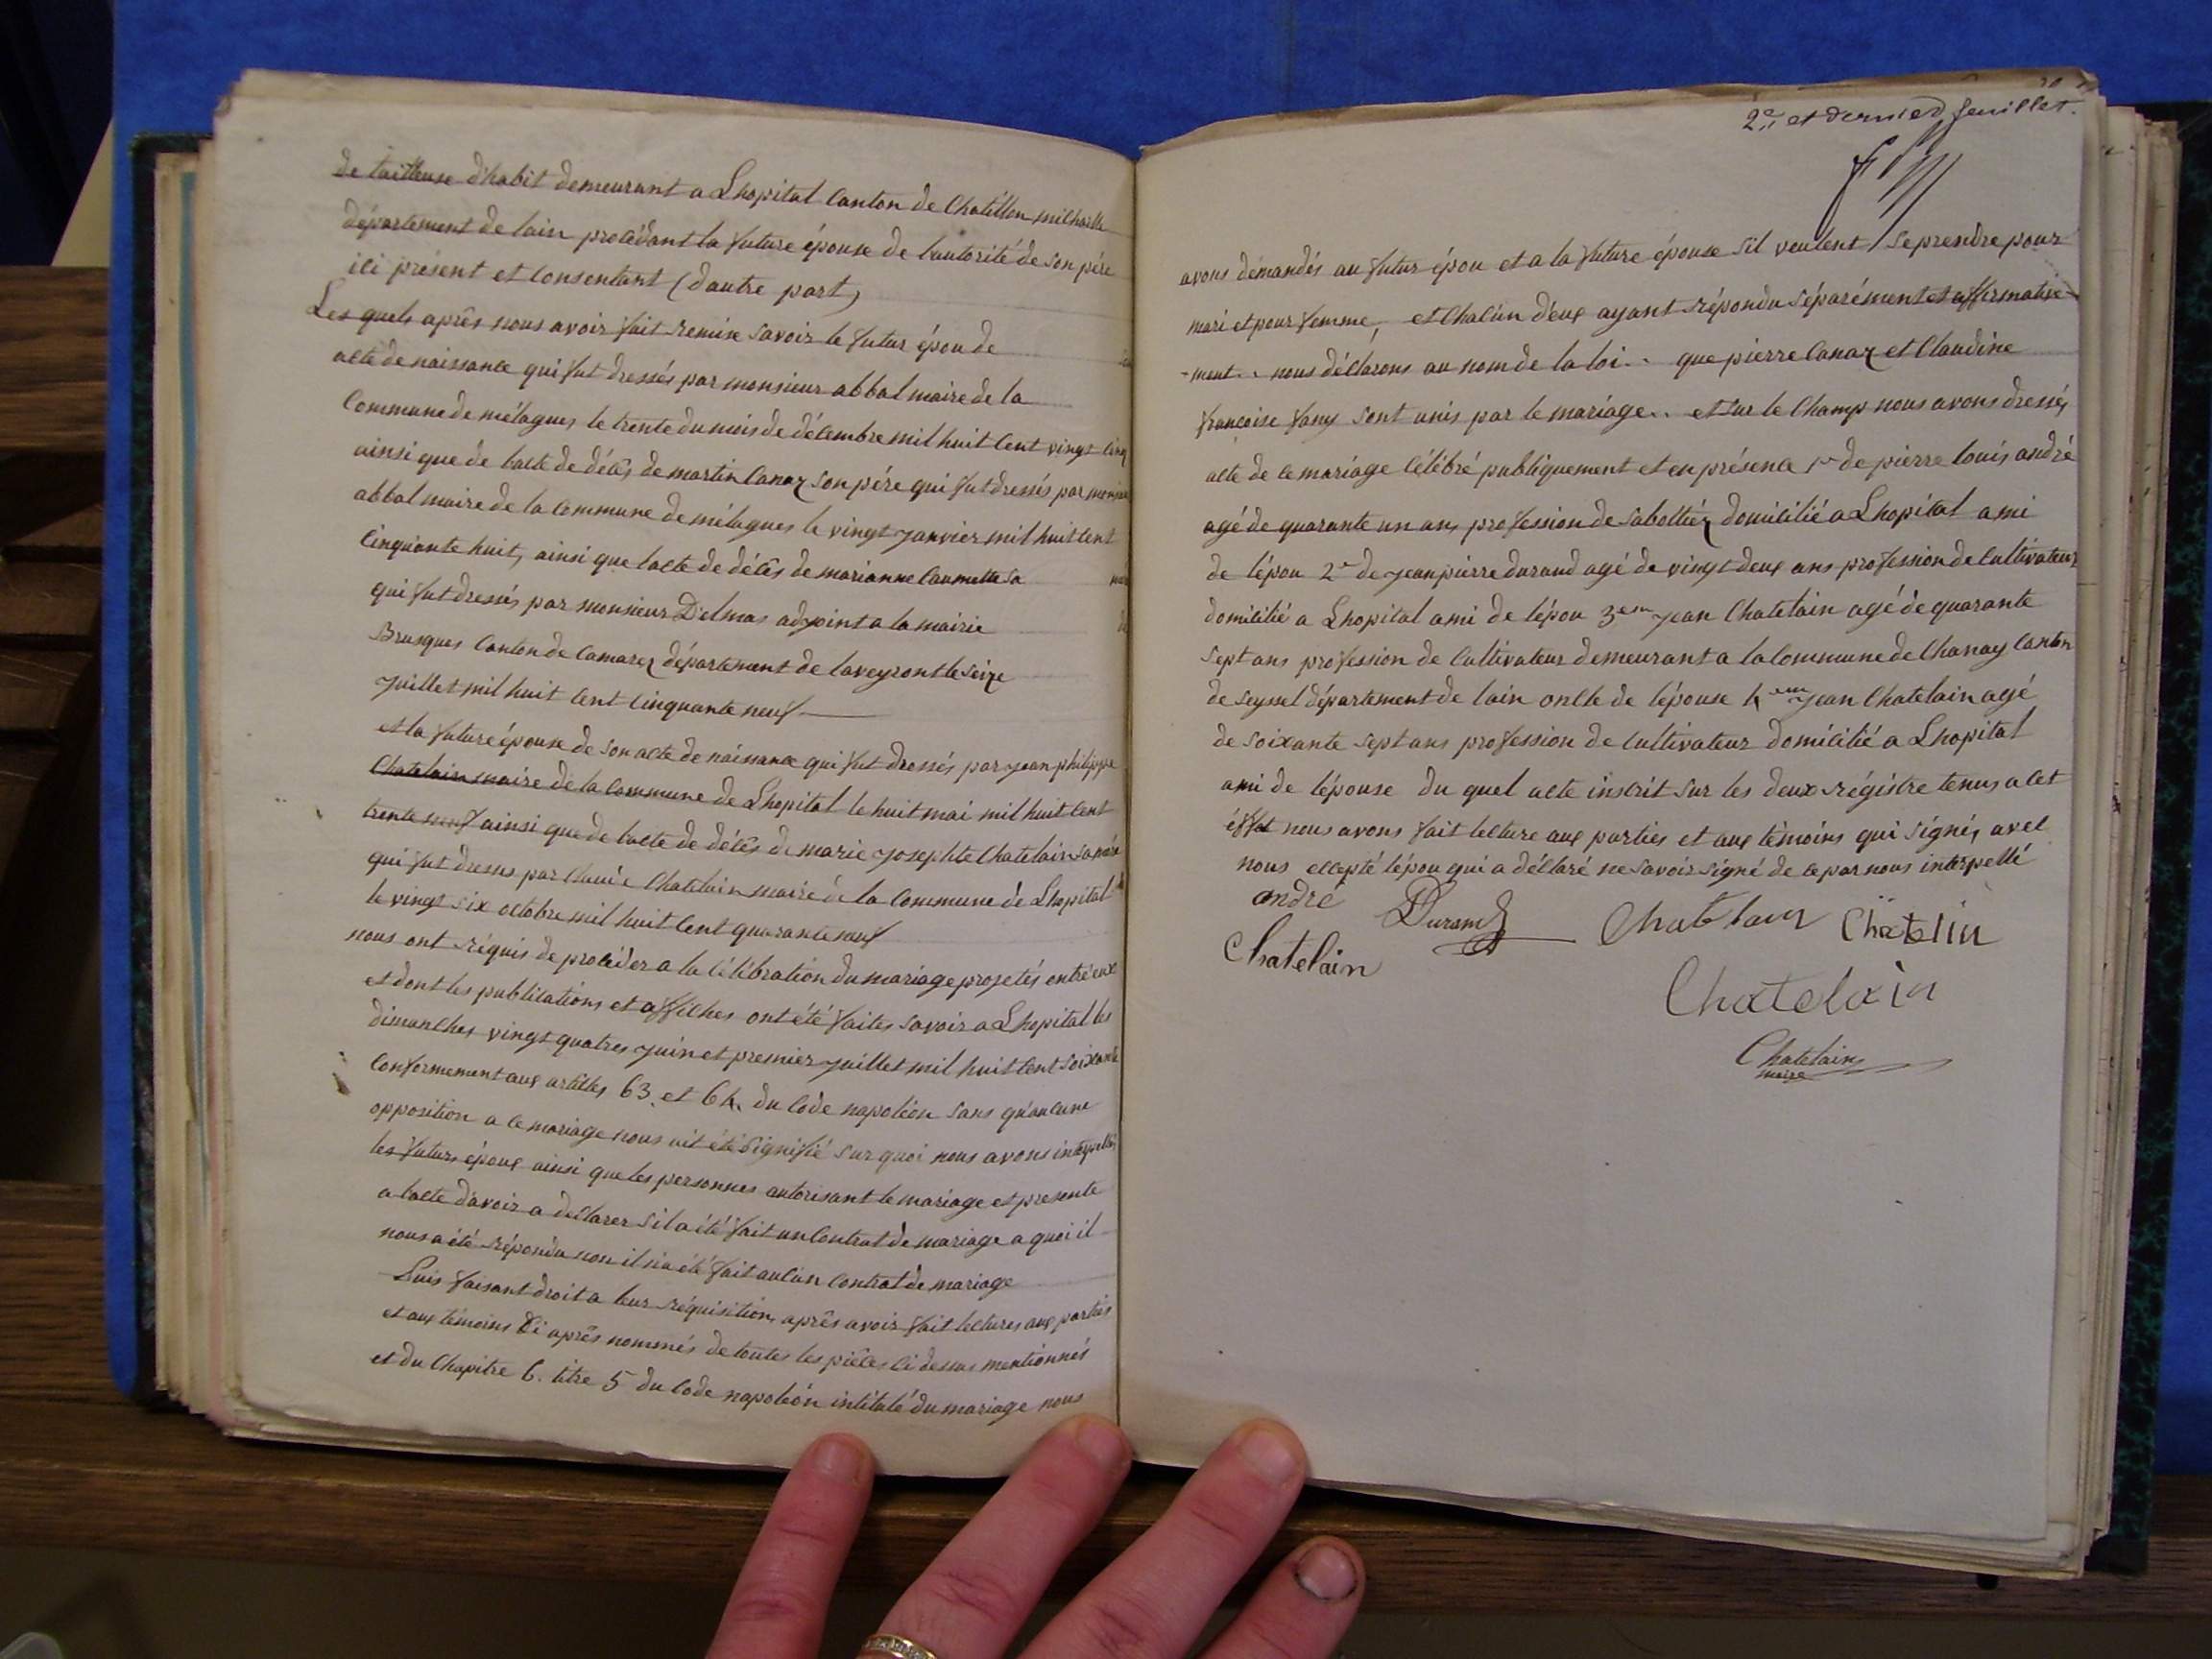 de tailleuse d'habit demeurant a Lhopital Canton de Chatillon michaille
département de lain procédant la future épouse de lautorité de son pére
ici présent et consentant (dautre part)
Les quels aprês nous avoir fait remise savoir le futur épou de
acte de naissance qui fut dressés par monsieur abbal maire de la
Commune de mélagues le trente du mois de décembre mil huit cent vingt cinq
ainsi que de lacte de décês de martin Canaz son pére qui fut dressés par monsieur
abbal maire de la commune de mélagues le vingt janvier mil huit cent
Cinquante huit, ainsi que lacte de décês de marianne Caumette sa
qui fut dressés par monsieur Delmas adjoint a la mairie
Brusques Canton de Camarez département de laveyront le seize
juillet mil huit cent cinquante neuf
et la future épouse de son acte de naissance qui fut dressés par jean philippe
Chatelain maire de la commune de Lhopital le huit mai mil huit cent
trente neuf ainsi que de lacte de décês de marie josephte Chatelain sa mére
qui fut dressés par Claude Chatelain maire de la Commune de Lhopital
le vingt six octobre mil huit cent quarante neuf
nous ont réquis de procéder a la célébration du mariage projetés entre eux
et dont les publications et affiches ont été faites savoir a Lhopital les
dimanches vingt quatres juin et premier juillet mil huit cent soixante
Conformement aux articles 63. et 64. du code napoléon sans qu'aucune
opposition a ce mariage nous ait été signifié sur quoi nous avons interpellé
les futurs époux ainsi que les personnes autorisant le mariage et presente
a lacte davoir a declarer sil a été fait un contrat de mariage a quoi il
nous a été répondu non il n'a été fait aucun contrat de mariage
Puis faisant droit a leur réquisition, aprês avoir fait lectures aux parties
et aux témoins Ci aprês nommés de toutes les piêces ci dessus mentionnés
et du Chapitre 6. titre 5 du code napoléon intitulé du mariage nous
2e et dernier feuillet.
avons démandés au futur épou et a la future épouse sil veulent se prendre pour
mari et pour femme, et chacun deux ayant répondu séparément et affirmative-
-ment.. nous déclarons au nom de la loi.. que pierre Canaz et Claudine
françoise fany sont unis par le mariage.. et sur le champ nous avons dressés
acte de ce mariage célébré publiquement et en présence 1er de pierre louis andré
agé de quarante un ans profession de sabottiez domicilié a Lhopital ami
de lépou 2e de jean pierre durand agé de vingt deux ans profession de cultivateur
domicilié a Lhopital ami de lépou 3em jean Chatelain agé de quarante
sept ans profession de Cultivateur demeurant a la commune de Chanay Canton
de seyssel département de lain oncle de lépouse 4em jean Chatelain agé
de soixante sept ans profession de Cultivateur domicilié a Lhopital
ami de lépouse du quel acte inscrit sur les deux régistre tenus a cet
éffet nous avons fait lecture aux parties et aux témoins qui signés avec
nous eccepté lépou qui a déclaré ne savoir signé de ce par nous interpellé
andré Durand Chatelain Chatelin
Chatelain
Chatelain
Chatelain
maire